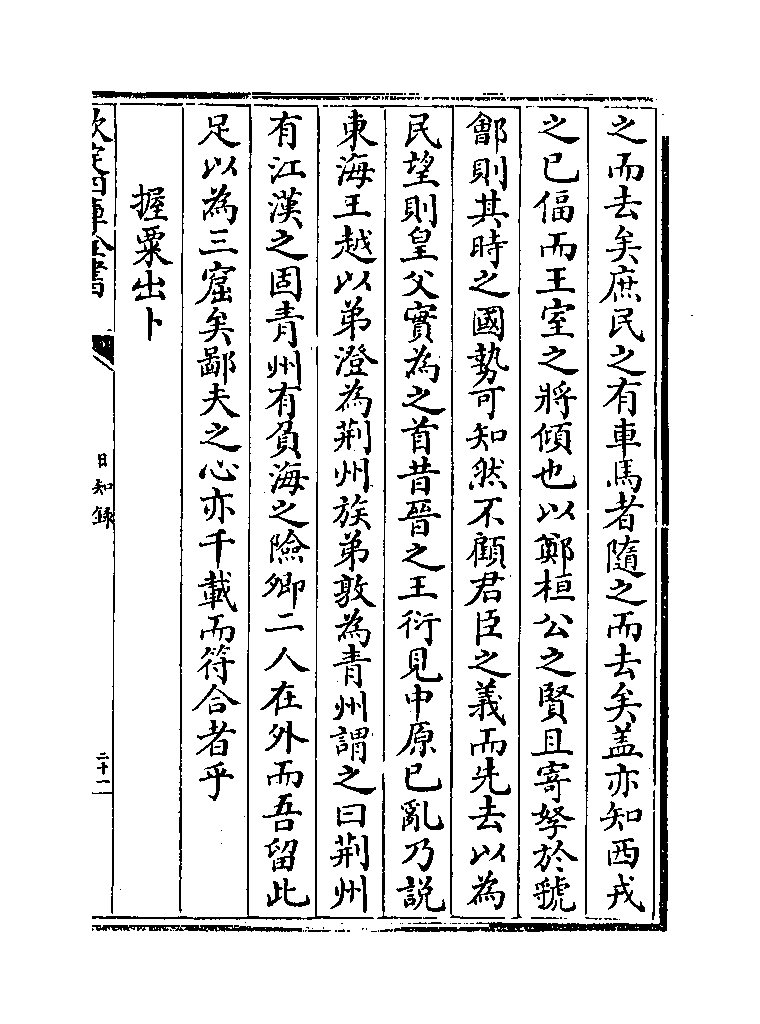 之而去矣庶民之有車馬者隨之而去矣盖亦知西戎
之已偪而王室之將傾也以鄭桓公之賢且寄孥於虢
鄶則其時之國勢可知然不顧君臣之義而先去以為
民望則皇父實為之首昔晉之王衍見中原已亂乃説
東海王越以弟澄為荆州族弟敦為青州謂之曰荆州
有江漢之固青州有負海之險卿二人在外而吾留此
足以為三窟矣鄙夫之心亦千載而符合者乎
握粟出卜
欽定四庫全書
日知録
二十一